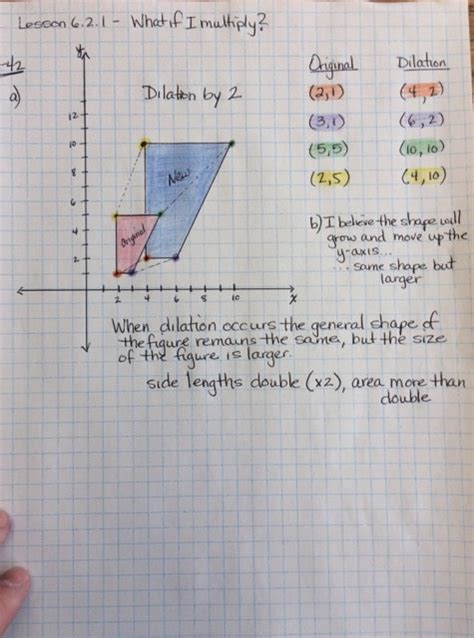 Lesson 6.2.1 - What if I multiply?
-42
a)
y
Dilation by 2
Original
Dilation
(2,1)
(4,2)
(3,1)
(6,2)
(5,5)
(10,10)
(2,5)
(4,10)
12
10
8
6
4
2
New
Original
2 4 6 8 10 x
b) I believe the shape will
grow and move up the
y-axis...
... same shape but
larger
When dilation occurs the general shape of
the figure remains the same, but the size
of the figure is larger.
side lengths double (x2), area more than
double